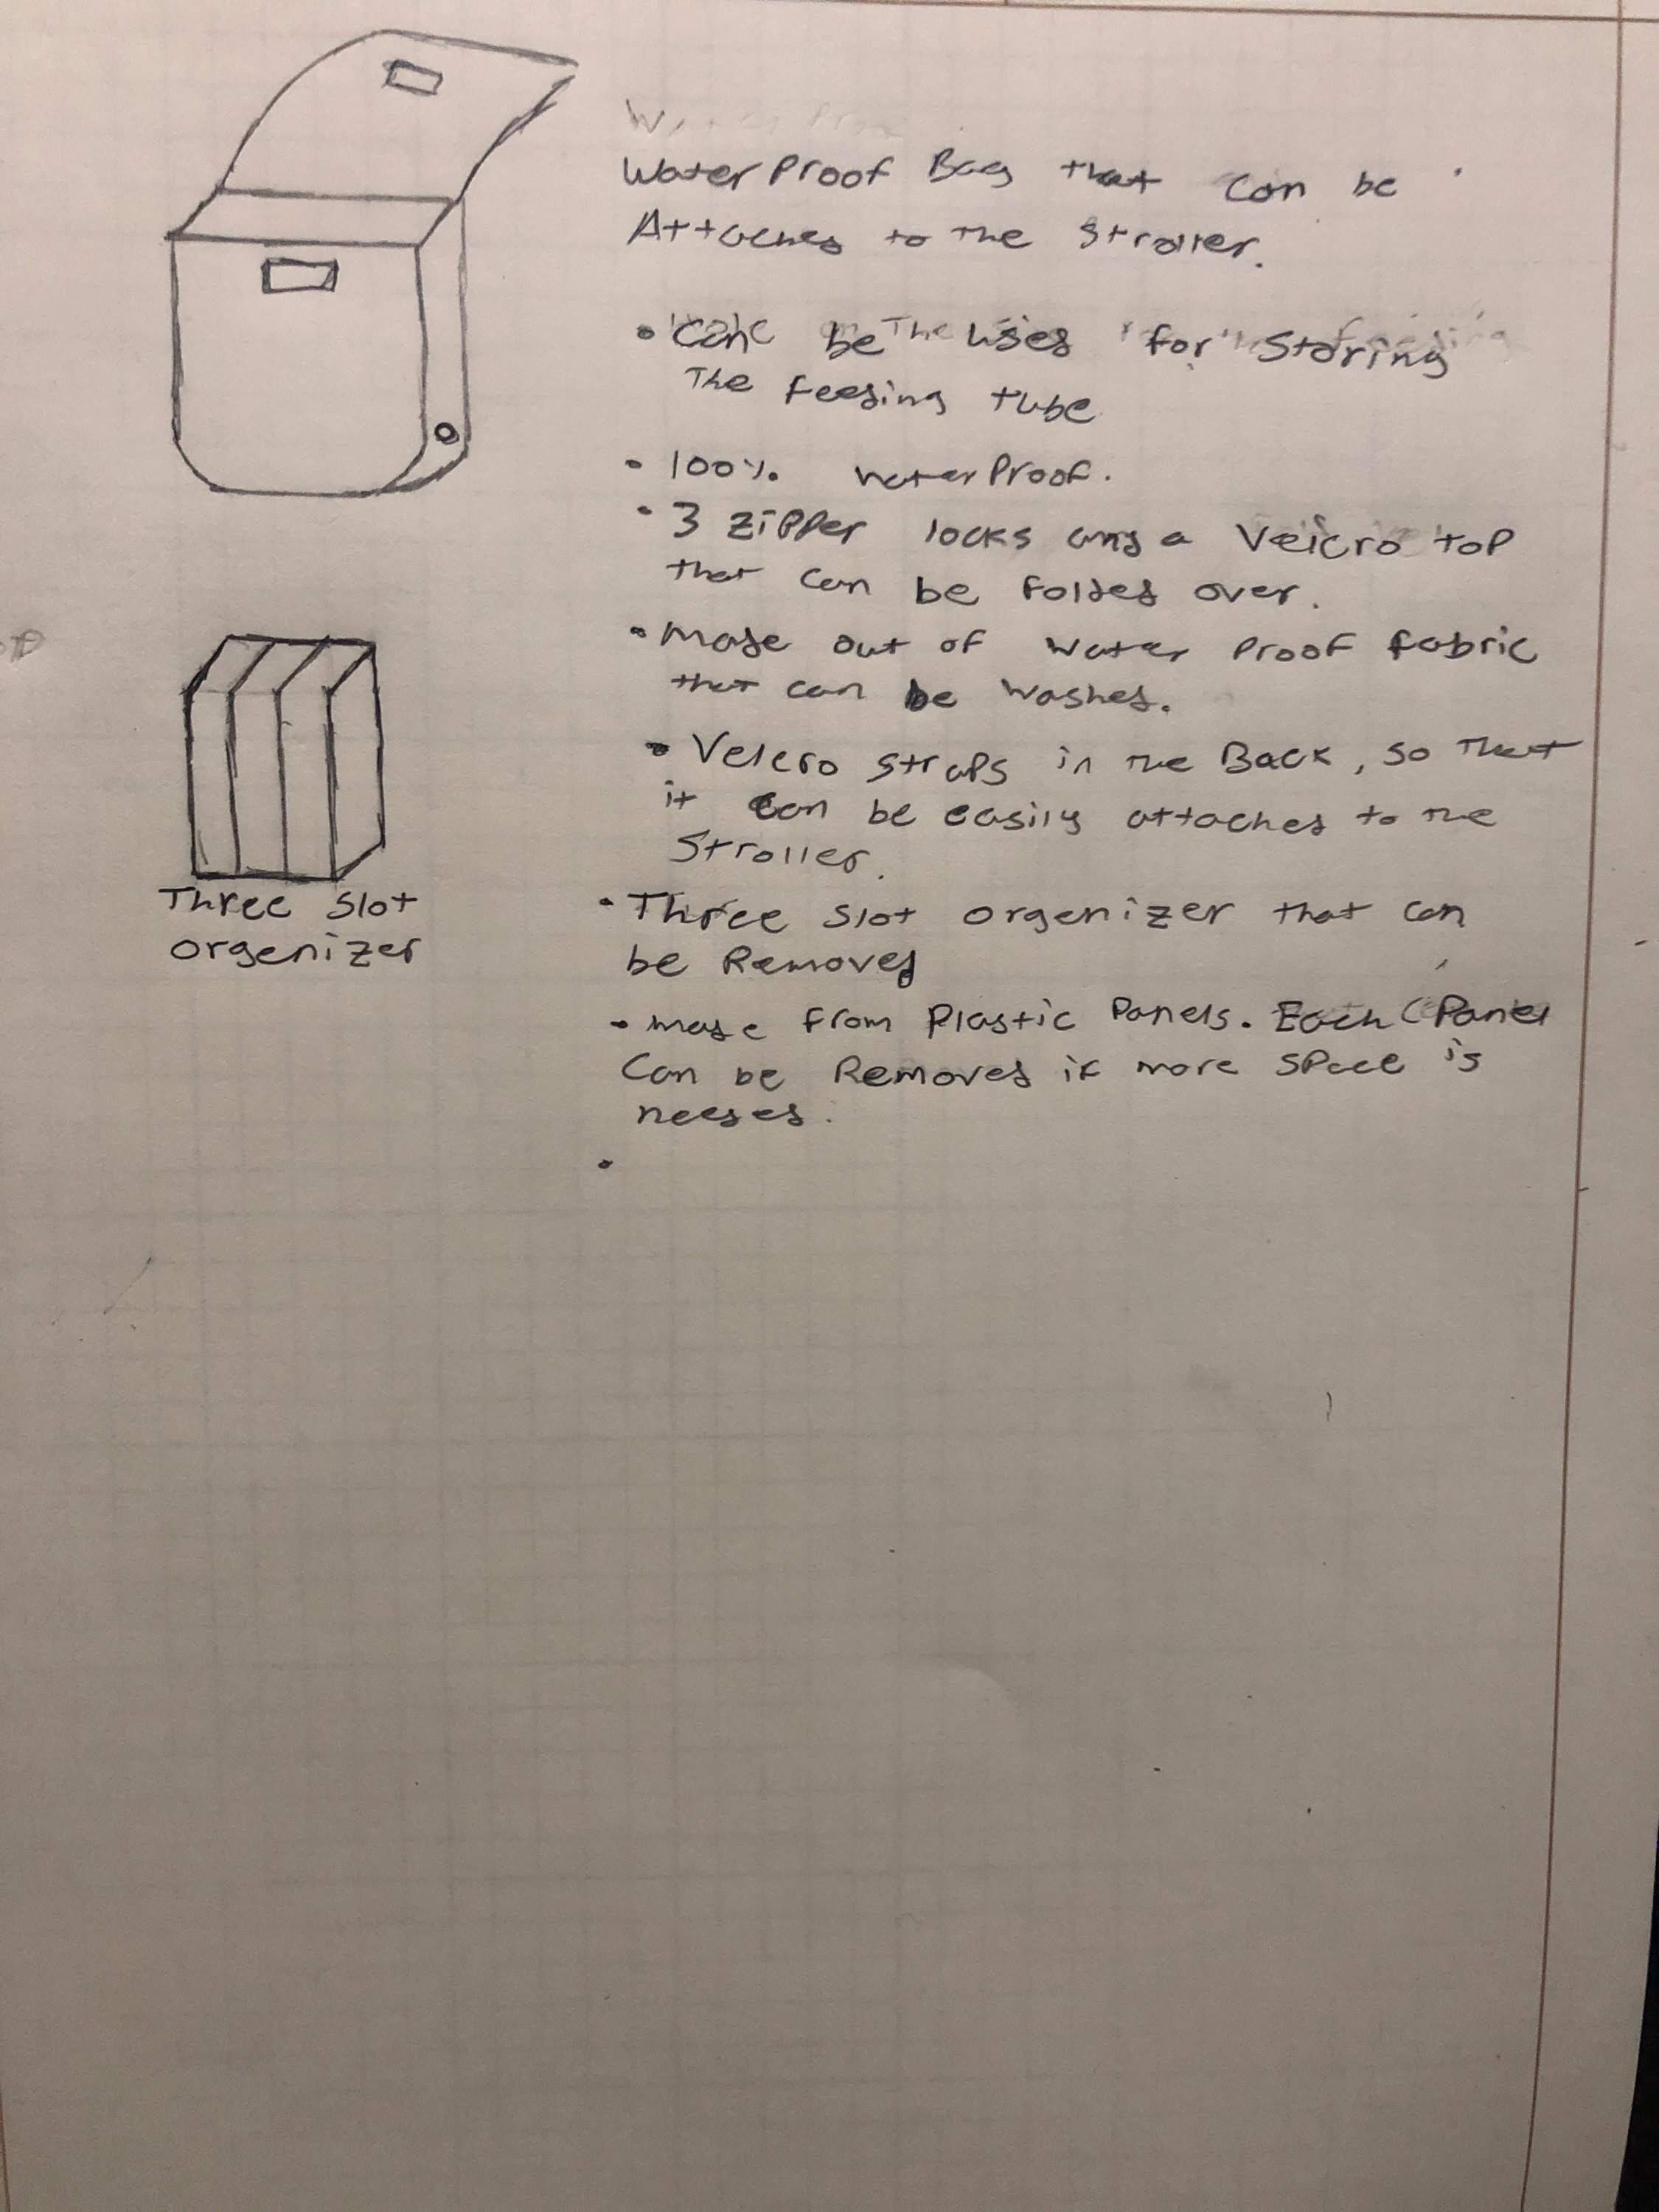 Water Proof Bag that can be
Attached to the stroller.
• Can be The used for Storing
The feeding tube
• 100% waterProof.
• 3 ZiPPer locks and a Velcro toP
that can be Folded over.
• Made out of water Proof fabric
that can be washed.
• Velcro straPs in the Back, so That
it can be easily attached to the
Stroller.
Three Slot
orgenizer
• Three Slot orgenizer that can
be Removed
• made from Plastic Panels. Each Panel
Can be Removed if more SPace is
needed.
•